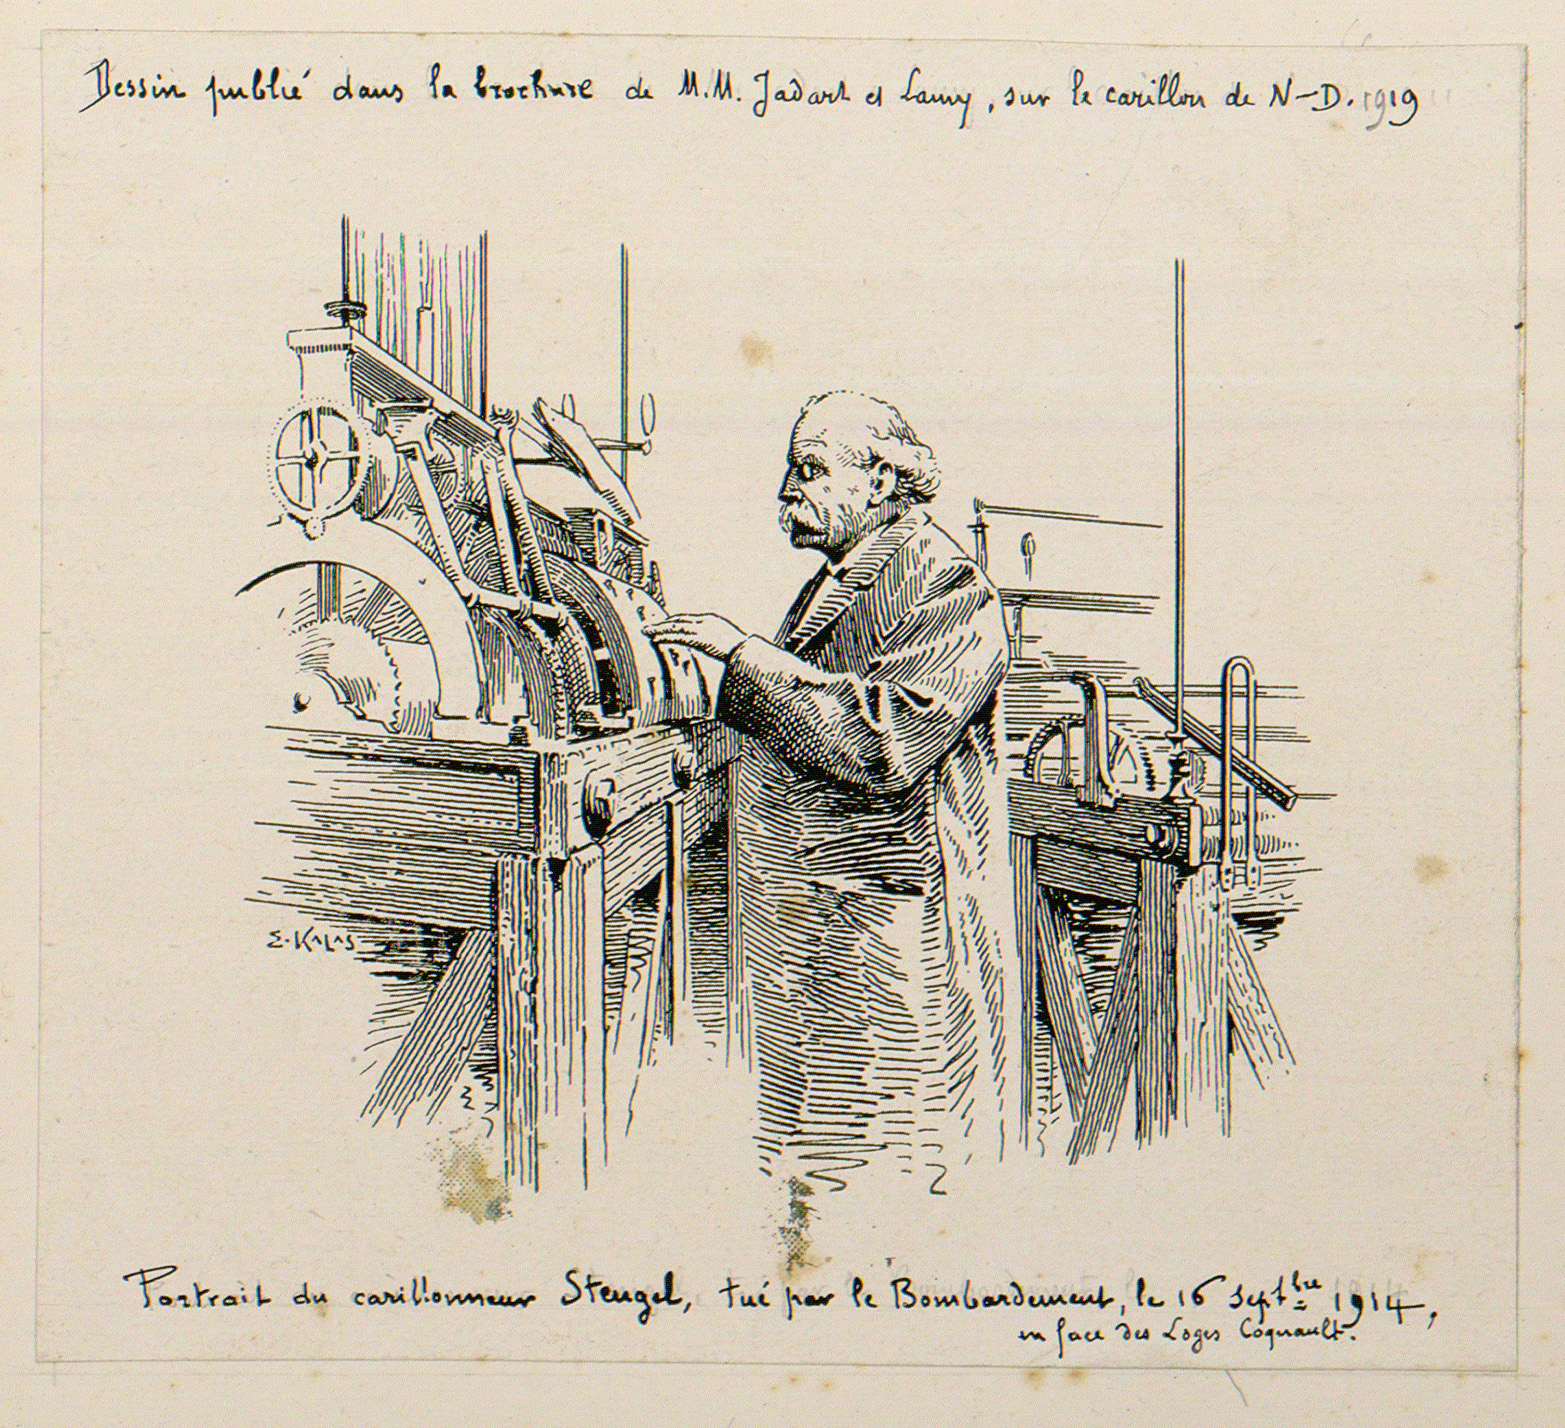 Dessin publié dans la brochure de M.M. Jadart et Lamy, sur le carillon de N-D. 1919
E. KALAS
Portrait du carillonneur Stengel, tué par le Bombardement, le 16 septbre 1914,
en face des Loges Coquault.